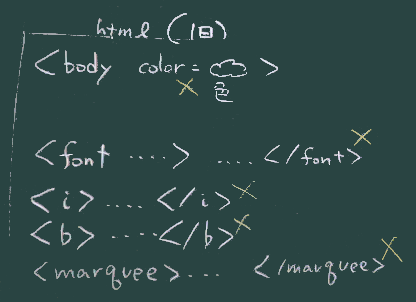 html (旧)
<body color = >
× 色
<font ....> .... </font> ×
<i> .... </i> ×
<b> .....</b> ×
<marquee>... </marquee> ×